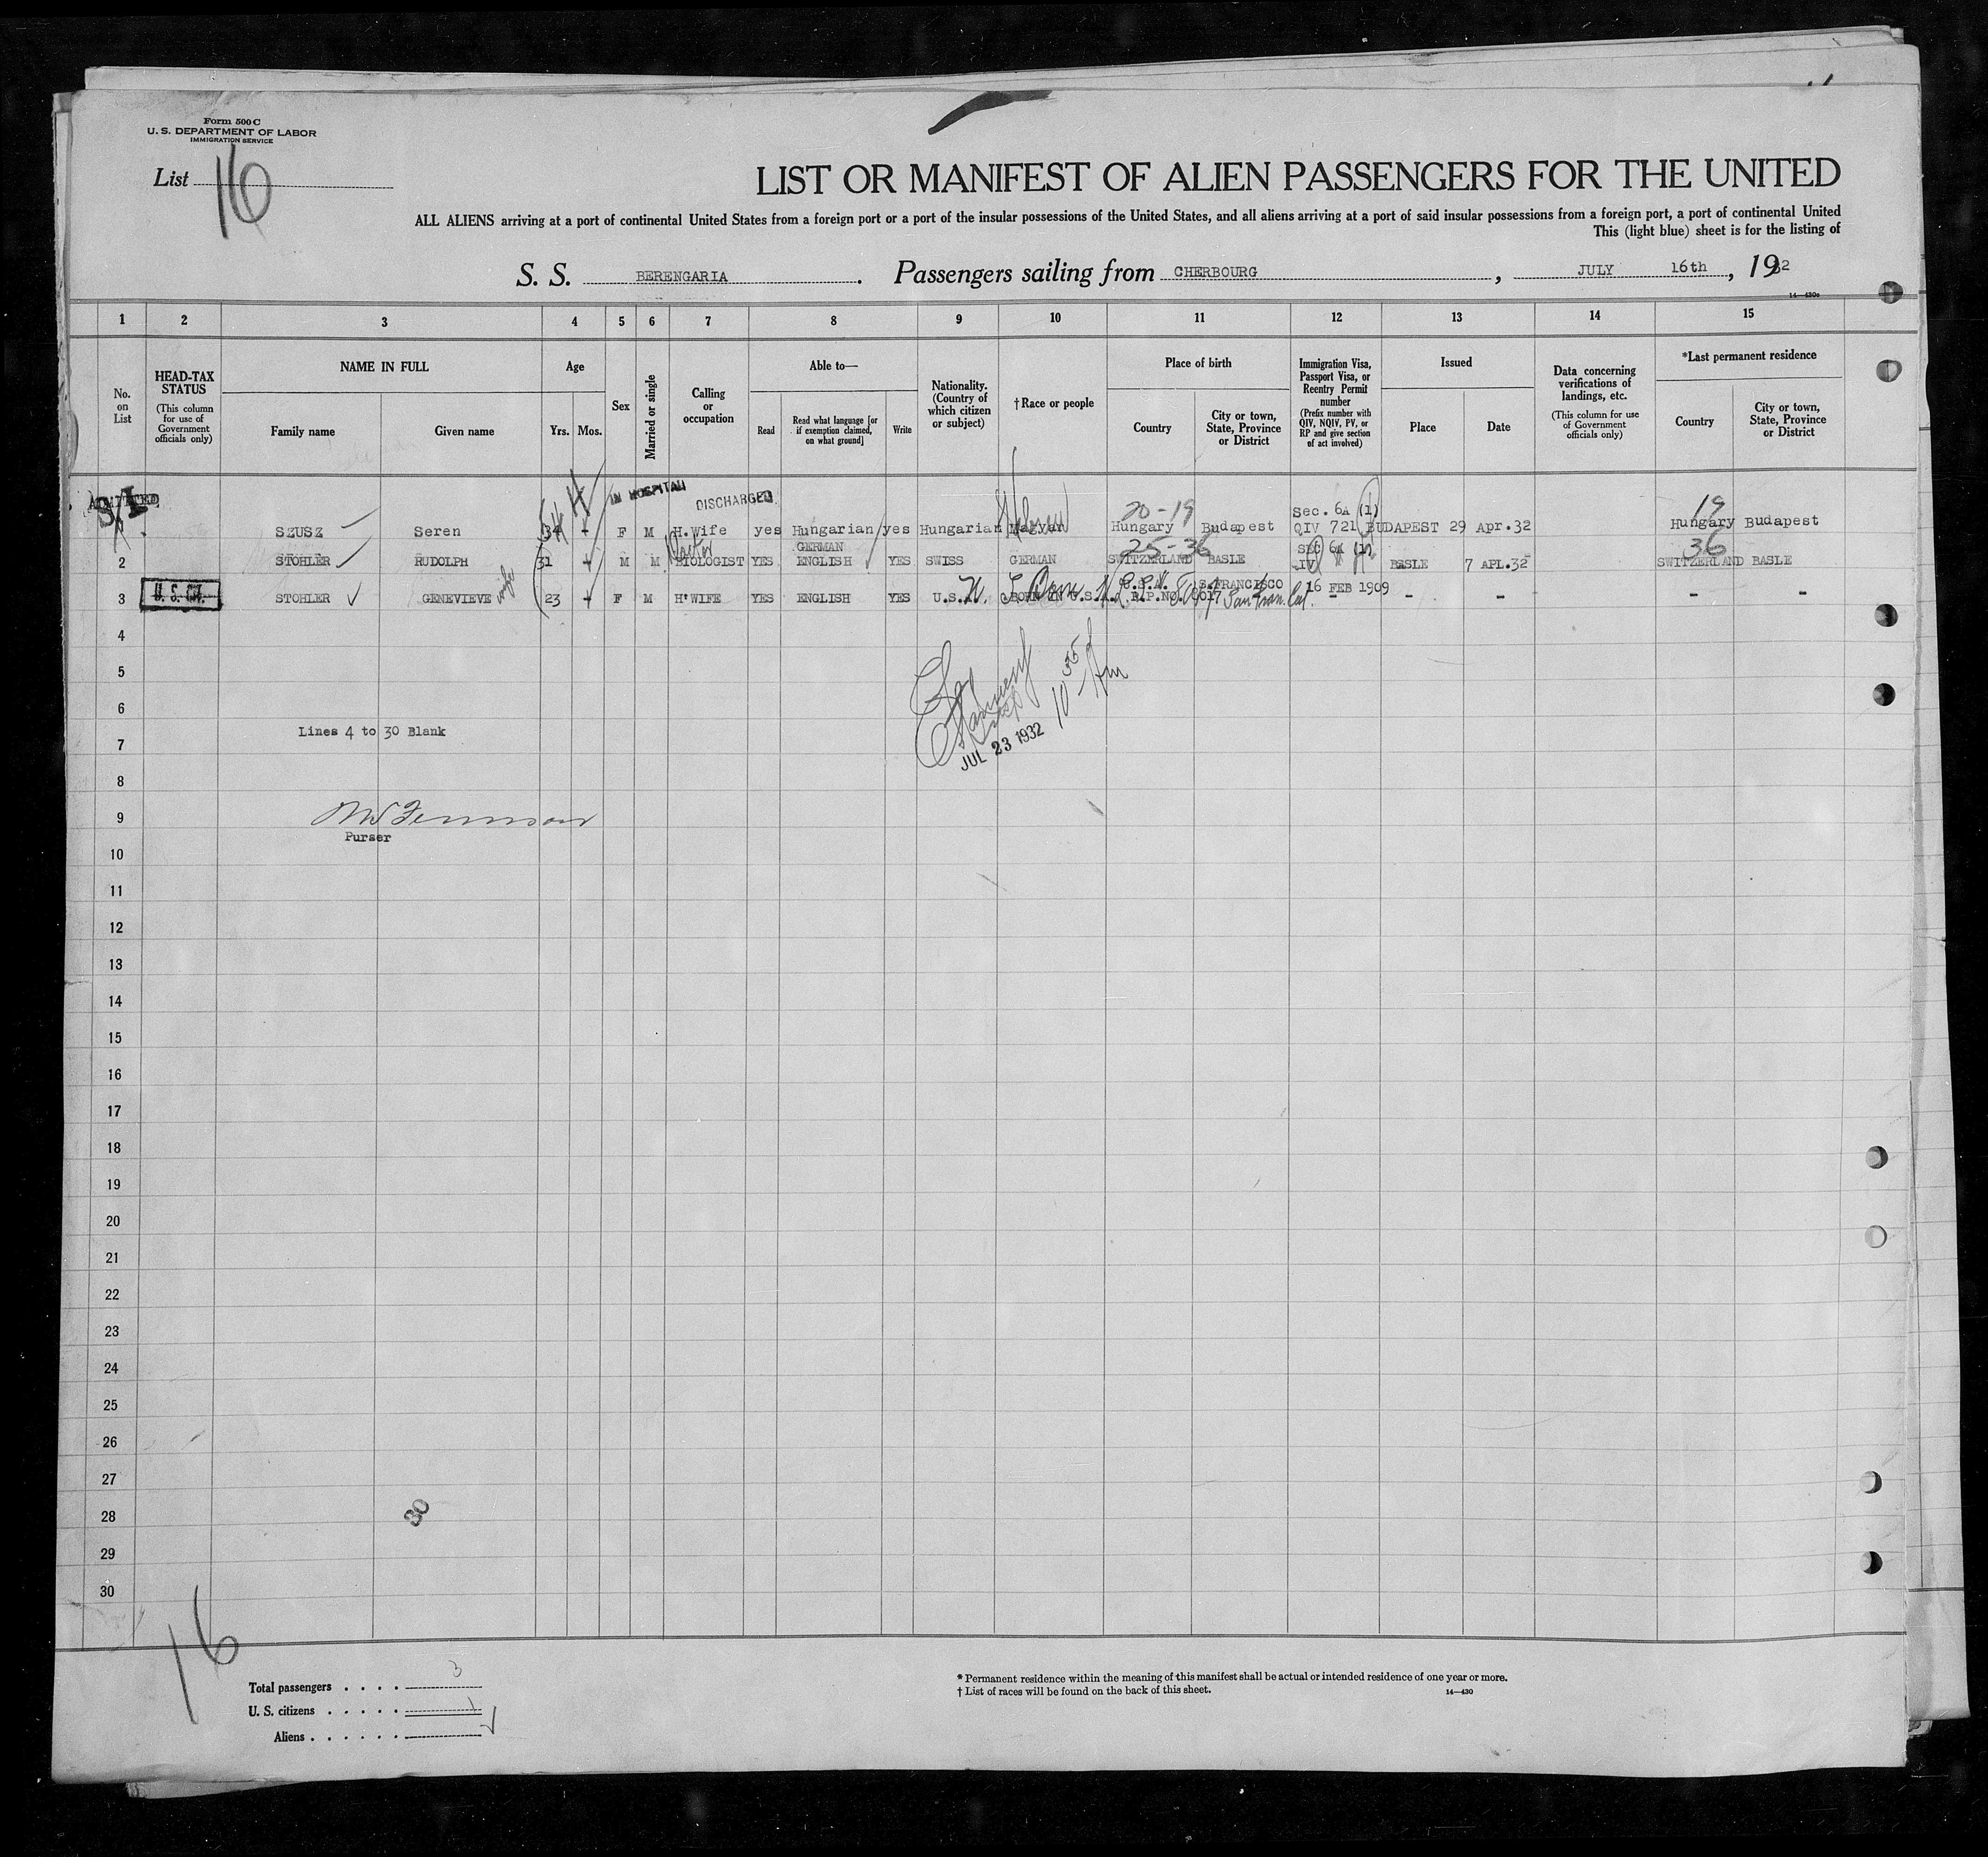 Form 500 C
U. S. DEPARTMENT OF LABOR
IMMIGRATION SERVICE
List 16
LIST OR MANIFEST OF ALIEN PASSENGERS FOR THE UNITED
ALL ALIENS arriving at a port of continental United States from a foreign port or a port of the insular possessions of the United States, and all aliens arriving at a port of said insular possessions from a foreign port, a port of continental United
This (light blue) sheet is for the listing of
S. S. BERENGARIA. Passengers sailing from CHERBOURG, JULY 16th, 1932
14—430c
1 2 3 4 5 6 7 8 9 10 11 12 13 14 15
No. on List
HEAD-TAX STATUS
(This column for use of Government officials only)
NAME IN FULL
Family name Given name
Age
Yrs. Mos.
Sex
Married or single
Calling or occupation
Able to—
Read
Read what language [or if exemption claimed, on what ground]
Write
Nationality. (Country of which citizen or subject)
†Race or people
Place of birth
Country
City or town, State, Province or District
Immigration Visa, Passport Visa, or Reentry Permit number
(Prefix number with QIV, NQIV, PV, or RP and give section of act involved)
Issued
Place Date
Data concerning verifications of landings, etc.
(This column for use of Government officials only)
*Last permanent residence
Country
City or town, State, Province or District
ADMITTED S I IN HOSPITAL DISCHARGED
Hebrew 20-19 Sec. 6A (1) 19
SZUSZ Seren 34 - F M H.Wife yes Hungarian yes Hungarian Magyar Hungary Budapest QIV 721 BUDAPEST 29 Apr.32 Hungary Budapest
Doctor GERMAN 25-36 SEC 6A (1) 36
2 STOHLER RUDOLPH 31 - M M BIOLOGIST YES ENGLISH YES SWISS GERMAN SWITZERLAND BASLE IV BASLE 7 APL.32 SWITZERLAND BASLE
U.S.A. S.FRANCISCO 16 FEB 1909
3 U. S. CIT. STOHLER GENEVIEVE wife 23 - F M H'WIFE YES ENGLISH YES U.S.A. BORN IN U.S.A. P.P.NO. San Fran. Cal. - - - - -
4
5
6
10 35 Am
Lines 4 to 30 Blank
7
JUL 23 1932
8
9
Purser
10
11
12
13
14
15
16
17
18
19
20
21
22
23
24
25
26
27
28
30
29
30
16
Total passengers . . . . 3
U. S. citizens . . . . . 1
Aliens . . . . . .
* Permanent residence within the meaning of this manifest shall be actual or intended residence of one year or more.
† List of races will be found on the back of this sheet.
14—430